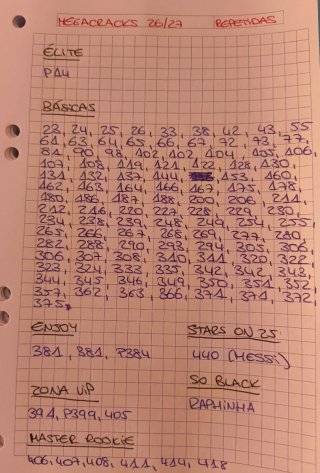 MEGACRACKS 26/27 REPETIDAS
ÉLITE
P14
BÁSICAS
23, 24, 25, 26, 33, 38, 42, 43, 55
61, 63, 64, 65, 66, 67, 72, 73, 77,
81, 90, 98, 102, 102, 104, 105, 106,
107, 108, 119, 121, 122, 128, 130,
131, 132, 137, 144, 153, 160,
162, 163, 164, 166, 167, 175, 178,
180, 186, 187, 188, 200, 206, 211,
212, 216, 220, 227, 228, 229, 230,
234, 238, 239, 248, 249, 254, 255,
265, 266, 267, 268, 269, 277, 280,
282, 288, 290, 293, 294, 305, 306,
306, 307, 308, 310, 311, 320, 322,
323, 324, 333, 335, 342, 342, 343,
344, 345, 346, 349, 350, 351, 352
357, 362, 363, 366, 371, 371, 372,
375,
ENJOY
381, 381, P384
STARS ON 25
440 (MESSI)
ZONA VIP
391, P399, 405
SO BLACK
RAPHINHA
MASTER ROOKIE
406, 407, 408, 411, 414, 418